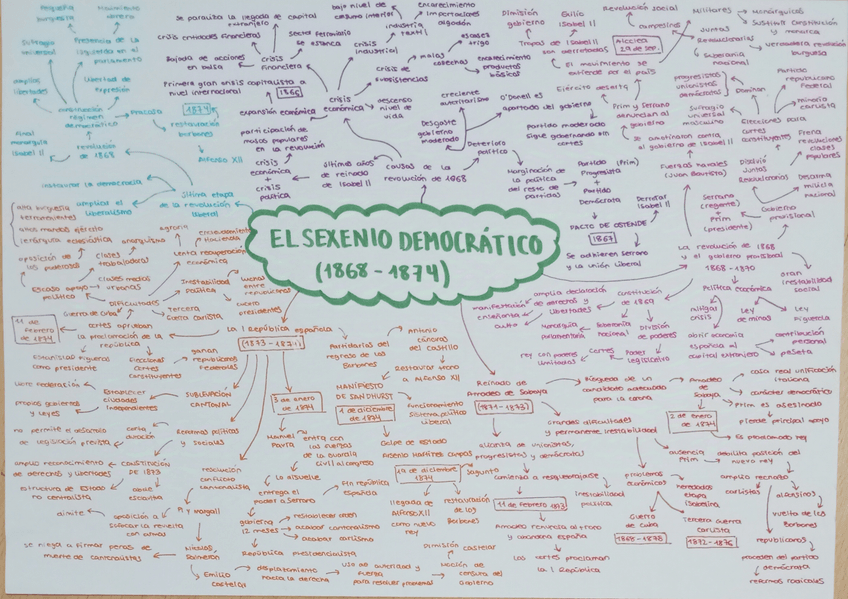 EL SEXENIO DEMOCRÁTICO
(1868 - 1874)
pequeña
burguesía
Movimiento
obrero
sufragio
universal
Presencia de la
izquierda en el
parlamento
amplias
libertades
libertad de
expresión
construcción
régimen
democrático
Fracaso
1874
restauración
borbones
Alfonso XII
Final
monarquía
Isabel II
revolución
de 1868
instaurar la democracia
ampliar el
liberalismo
última etapa
de la revolución
liberal
se paraliza la llegada de capital
extranjero
crisis entidades financieras
sector ferroviario
se estanca
Bajada de acciones
en bolsa
crisis
financiera
Primera gran crisis capitalista a
nivel internacional
1866
expansión económica
crisis
económica
bajo nivel de
consumo interior
industria
textil
encarecimiento
importaciones
algodón
crisis
industrial
crisis de
subsistencias
malas
cosechas
escasez
trigo
encarecimiento
productos
básicos
descenso
nivel de
vida
participación de
masas populares
en la revolución
crisis
económica
+
crisis
política
últimos años
de reinado
de Isabel II
causas de la
revolución de 1968
creciente
autoritarismo
Desgaste
gobierno
moderado
Deterioro
político
O'Donell es
apartado del gobierno
Partido moderado
sigue gobernando sin
cortes
Marginación de
la política
del resto de
partidos
Partido (Prim)
Progresista
+
Partido
Demócrata
Derrotar
Isabel II
PACTO DE OSTENDE
1867
Se adhieren Serrano
y la unión liberal
Dimisión
gobierno
Exilio
Isabel II
Tropas de Isabel II
son derrotadas
Alcolea
29 de sep.
el movimiento se
extiende por el país
Revolución social
campesinos
Juntas
Revolucionarias
Militares
monárquicos
sustituir constitución
y monarca
verdadera revolución
burguesa
Soberanía
nacional
Ejército desierta
Prim y Serrano
anuncian al
gobierno
se amotinaron contra
el gobierno de Isabel II
Fuerzas navales
(Juan Bautista)
progresistas
unionistas
demócratas
Dominan
Partido
republicano
Federal
minoría
carlista
Sufragio
universal
masculino
Elecciones para
cortes
constituyentes
Disolvió
Juntas
Revolucionarias
Frena
revoluciones
clases
populares
Desarma
milicia
nacional
Serrano
(regente)
+
Prim
(presidente)
Gobierno
provisional
La revolución de 1868
y el gobierno provisional
1868 - 1870
Política económica
gran
inestabilidad
social
mitigar
crisis
Ley
de minas
Ley
Figuerola
abrir economía
española al
capital extranjero
peseta
amplia declaración
de derechos y
libertades
manifestación
enseñanza
culto
constitución
de 1869
Monarquía
parlamentaria
Soberanía
nacional
División
de poderes
rey con poderes
limitados
Cortes
Poder
legislativo
alta burguesía
terratenientes
altos mandos ejército
jerarquía eclesiástica
oposición de
los poderosos
anarquismo
clases
trabajadoras
Escaso apoyo
político
clases medias
urbanas
DIFICULTADES
agraria
lenta recuperación
económica
Inestabilidad
política
luchas
entre
republicanos
cuatro
presidentes
Guerra de Cuba
tercera
guerra carlista
11 de
febrero
de 1874
cortes aprueban
la proclamación de la
república
La I República española
(1873 - 1874)
Estanislao Figueras
como presidente
Elecciones
cortes
constituyentes
ganan
republicanos
federales
libre federación
Establecer
ciudades
independientes
SUBLEVACIÓN
CANTONAL
propios gobiernos
y leyes
no permite el desarrollo
de legislación prevista
corta
duración
Reformas políticas
y sociales
amplio reconocimiento
de derechos y libertades
CONSTITUCIÓN
DE 1873
resolución
conflicto
cantonalista
estructura de Estado
no centralista
dimite
oposición a
sofocar la revuelta
con armas
Pi y Margall
se niega a firmar penas de
muerte de cantonalistas
Nicolás
Salmerón
Emilio
Castelar
desplazamiento
hacia la derecha
uso de autoridad y
fuerza
para resolver problemas
Moción de
censura del
gobierno
Dimisión Castelar
3 de enero
de 1874
Manuel
Pavía
entra con
las fuerzas
de la guardia
civil al congreso
La disuelve
entrega el
poder a Serrano
Fin república
española
gobierna
12 meses
restablecer orden
acabar cantonalismo
acabar carlismo
República presidencialista
Partidarios del
regreso de los
Borbones
Antonio
Cánovas
del Castillo
Restaurar trono
a Alfonso XII
MANIFIESTO
DE SANDHURST
1 de diciembre
de 1874
Funcionamiento
sistema político
liberal
Golpe de estado
Arsenio Martínez Campos
Sagunto
llegada de
Alfonso XII
como nuevo
rey
restauración
de los
Borbones
Reinado de
Amadeo de Saboya
(1871 - 1873)
Búsqueda de un
candidato adecuado
para la corona
Amadeo
de
Saboya
casa real unificación
italiana
carácter democrático
Prim es asesinado
pierde principal apoyo
2 de enero
de 1874
Es proclamado rey
Grandes dificultades
y permanente inestabilidad
alianza de unionistas,
progresistas y demócratas
comienza a resquebrajarse
Inestabilidad
política
Amadeo renuncia al trono
y abandona España
Las cortes proclaman
la I República
ausencia
Prim
debilita posición del
nuevo rey
problemas
económicos
heredados
etapa
isabelina
amplio rechazo
carlistas
alfonsinos
vuelta de los
Borbones
republicanos
proceden del partido
demócrata
reformas radicales
Guerra
de Cuba
1868 - 1878
Tercera Guerra
Carlista
1872 - 1876